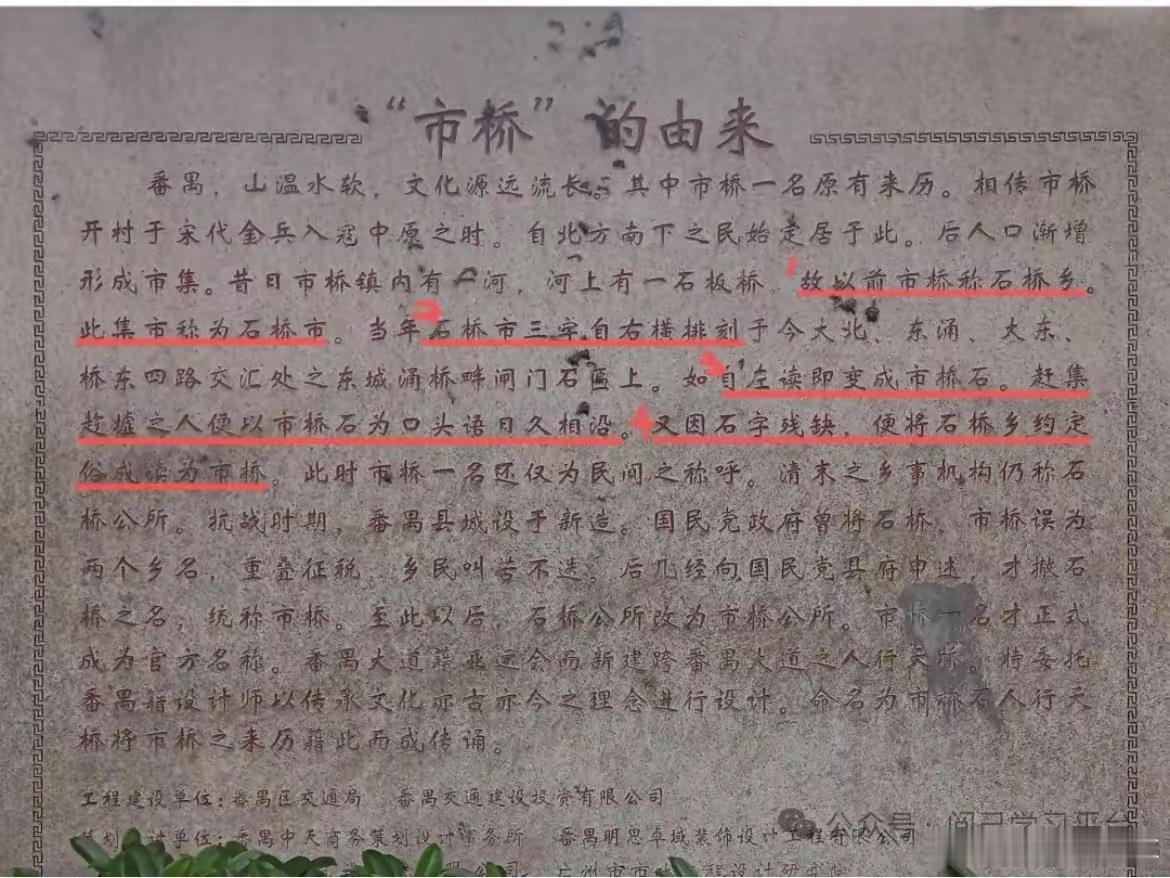 “市桥”的由来
番禺，山温水软，文化源远流长。其中市桥一名原有来历。相传市桥
开村于宋代金兵入寇中原之时。自北方南下之民始定居于此。后人口渐增
形成市集。昔日市桥镇内有一河，河上有一石板桥，1故以前市桥称石桥乡。
此集市称为石桥市。当年2石桥市三字自右横排刻于今大北、东涌、大东、
桥东四路交汇处之东城涌桥畔闸门石匾上。如3自左读即变成市桥石。赶集
趁墟之人便以市桥石为口头语日久相沿。4又因石字残缺，便将石桥乡约定
俗成读为市桥。此时市桥一名还仅为民间之称呼。清末之乡事机构仍称石
桥公所。抗战时期，番禺县城设于新造。国民党政府曾将石桥、市桥误为
两个乡名，重叠征税，乡民叫苦不迭。后几经向国民党县府申述，才撤石
桥之名，统称市桥。至此以后，石桥公所改为市桥公所。市桥一名才正式
成为官方名称。番禺大道藉亚运会而新建跨番禺大道之人行天桥。特委托
番禺籍设计师以传承文化亦古亦今之理念进行设计。命名为市桥石人行天
桥将市桥之来历藉此而成传诵。
工程建设单位：番禺区交通局 番禺交通建设投资有限公司
策划设计单位：番禺中天商务策划设计事务所 番禺明思卓域装饰设计工程有限公司
公众号·阅己学习平台